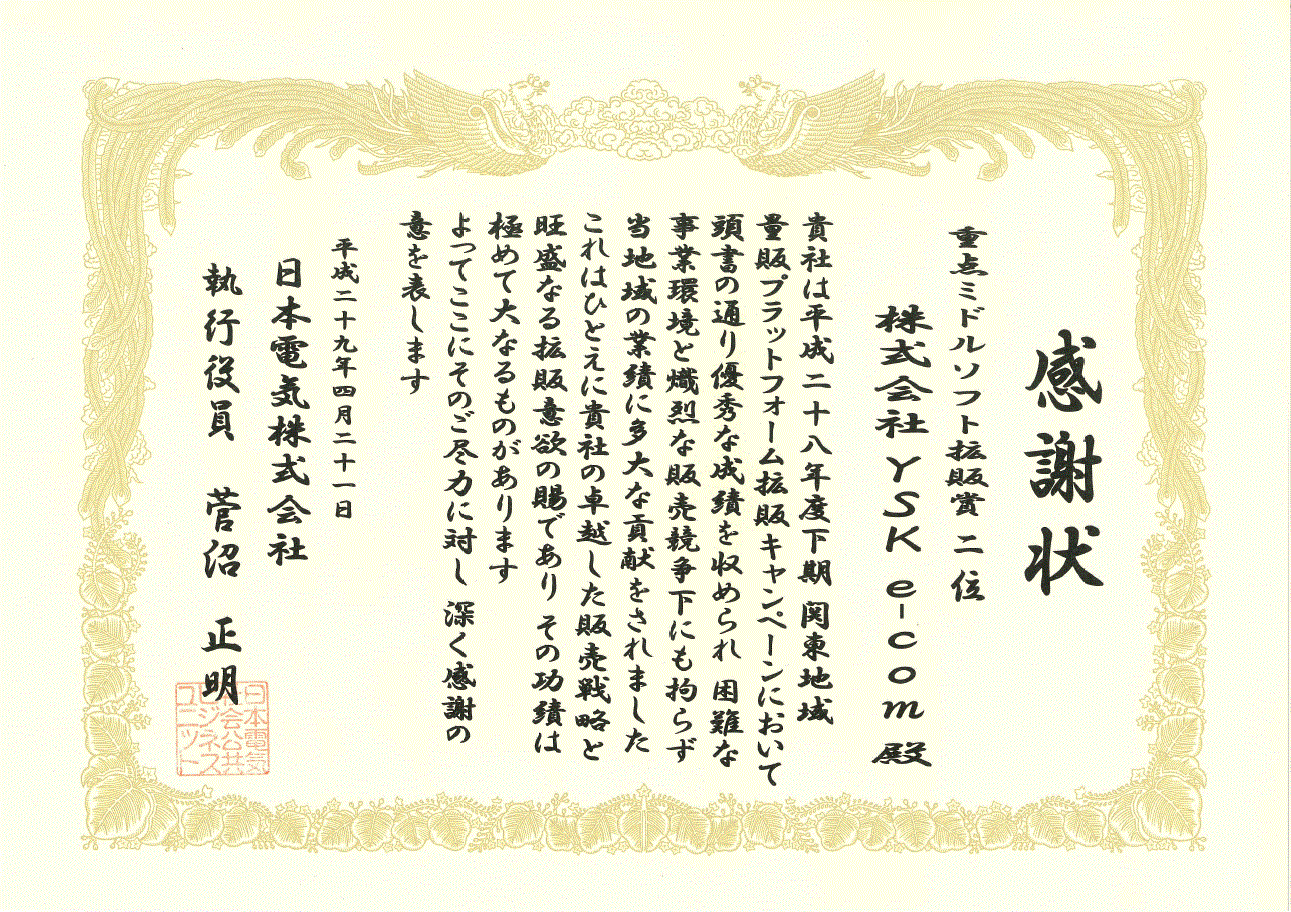 感謝状
重点ミドルソフト拡販賞 二位
株式会社YSK e-com 殿
貴社は平成二十八年度下期 関東地域
量販プラットフォーム拡販キャンペーンにおいて
頭書の通り優秀な成績を収められ 困難な
事業環境と熾烈な販売競争下にも拘らず
当地域の業績に多大な貢献をされました
これはひとえに貴社の卓越した販売戦略と
旺盛なる拡販意欲の賜であり その功績は
極めて大なるものがあります
よってここにそのご尽力に対し 深く感謝の
意を表します
平成二十九年四月二十一日
日本電気株式会社
執行役員 菅沼 正明
日本電気
会公共
ビジネス
ユニット